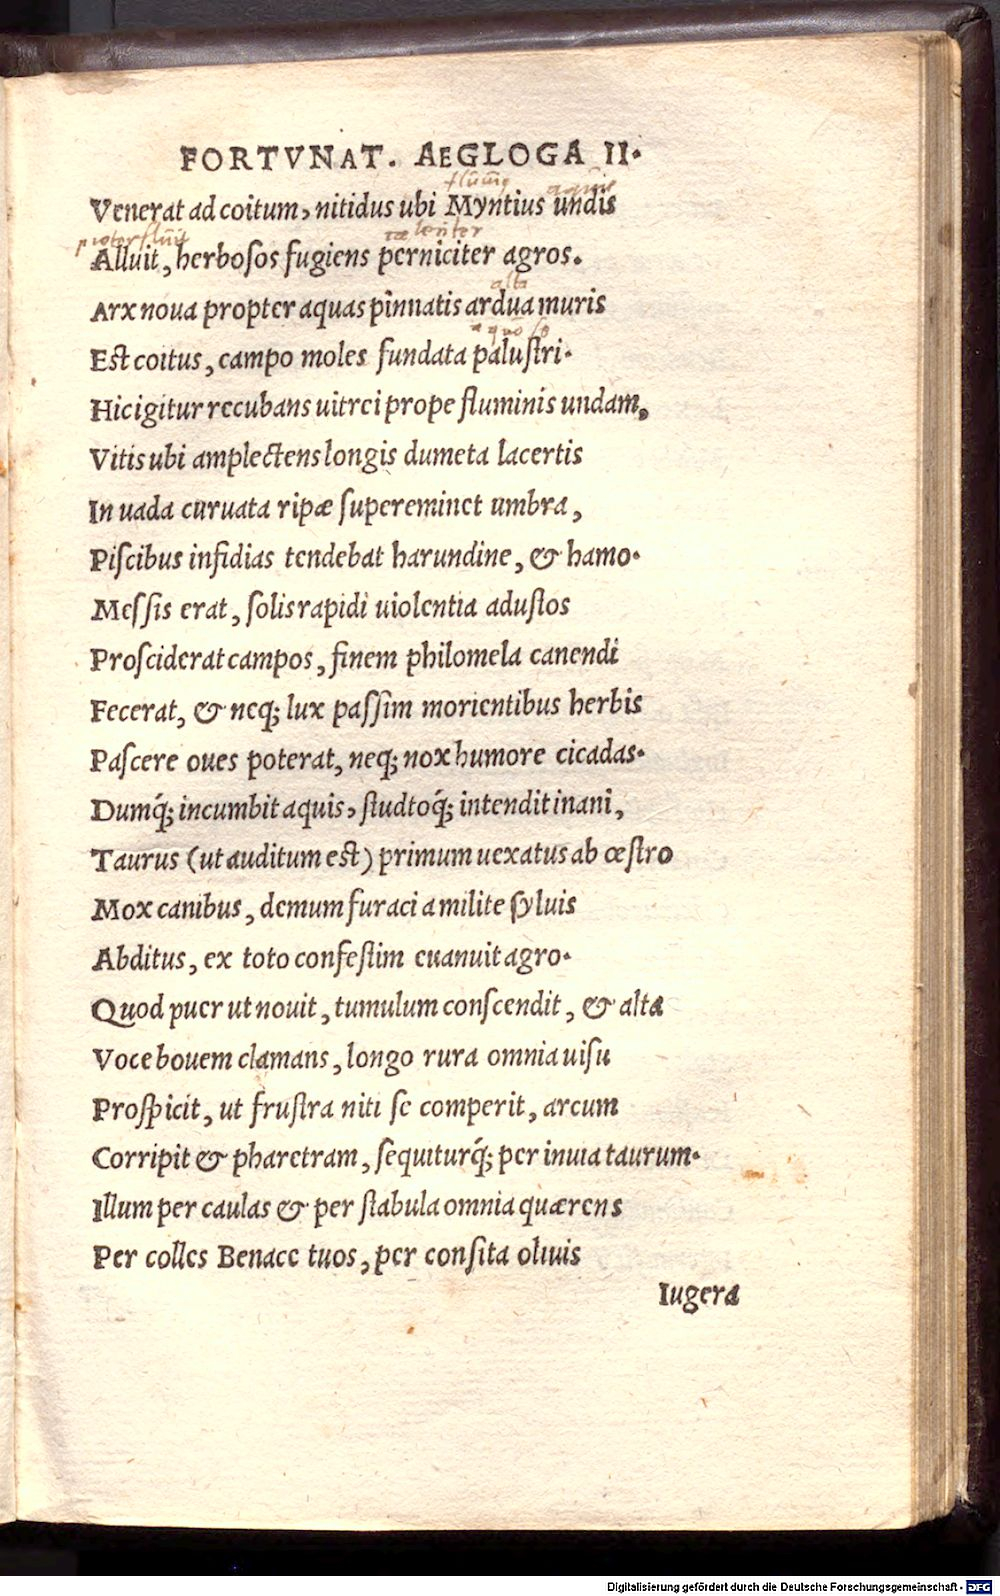 FORTVNAT. AEGLOGA II.
fluuiꝰ aquis
Venerat ad coitum, nitidus ubi Myntius undis
preterfluit celeriter
Alluit, herbosos fugiens perniciter agros.
alta
Arx noua propter aquas pinnatis ardua muris
aquoso
Est coitus, campo moles fundata palustri.
Hic igitur recubans uitrei prope fluminis undam,
Vitis ubi amplectens longis dumeta lacertis
In uada curuata ripæ supereminet umbra,
Piscibus insidias tendebat harundine, & hamo.
Messis erat, solis rapidi uiolentia adustos
Prosciderat campos, finem philomela canendi
Fecerat, & neq; lux passim morientibus herbis
Pascere oues poterat, neq; nox humore cicadas.
Dumq́; incumbit aquis, studtoq́; intendit inani,
Taurus (ut auditum est) primum uexatus ab œstro
Mox canibus, demum furaci a milite syluis
Abditus, ex toto confestim euanuit agro.
Quod puer ut nouit, tumulum conscendit, & alta
Voce bouem clamans, longo rura omnia uisu
Prospicit, ut frustra niti se comperit, arcum
Corripit & pharetram, sequiturq́; per inuia taurum.
Illum per caulas & per stabula omnia quærens
Per colles Benace tuos, per consita oliuis
Iugera
Digitalisierung gefördert durch die Deutsche Forschungsgemeinschaft - DFG